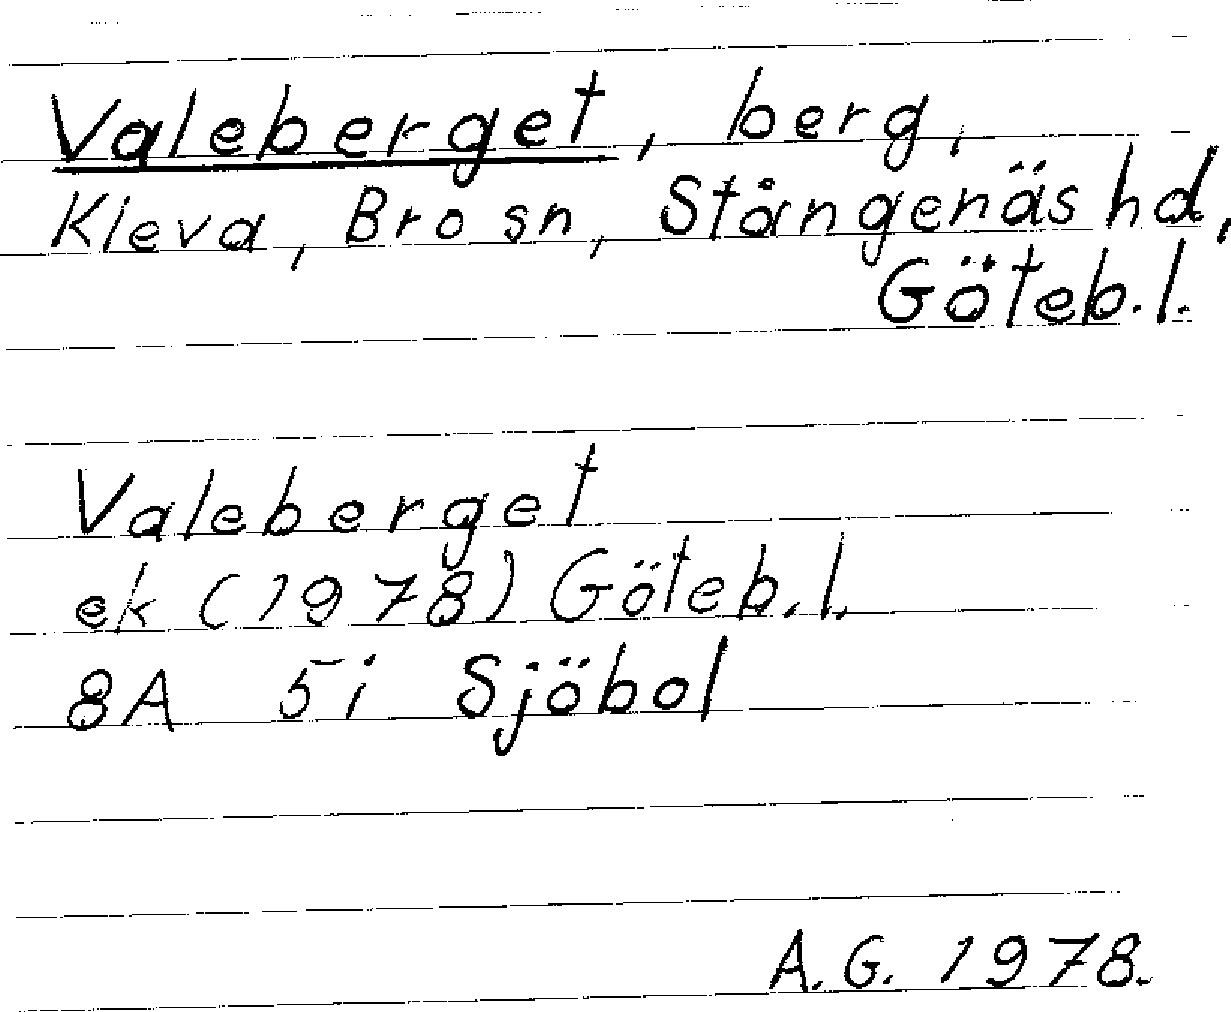 Valeberget, berg,
Kleva, Bro sn, Stångenäs hd,
Göteb. l.
Valeberget
ek (1978) Göteb. l.
8A 5i Sjöbol
A. G. 1978.